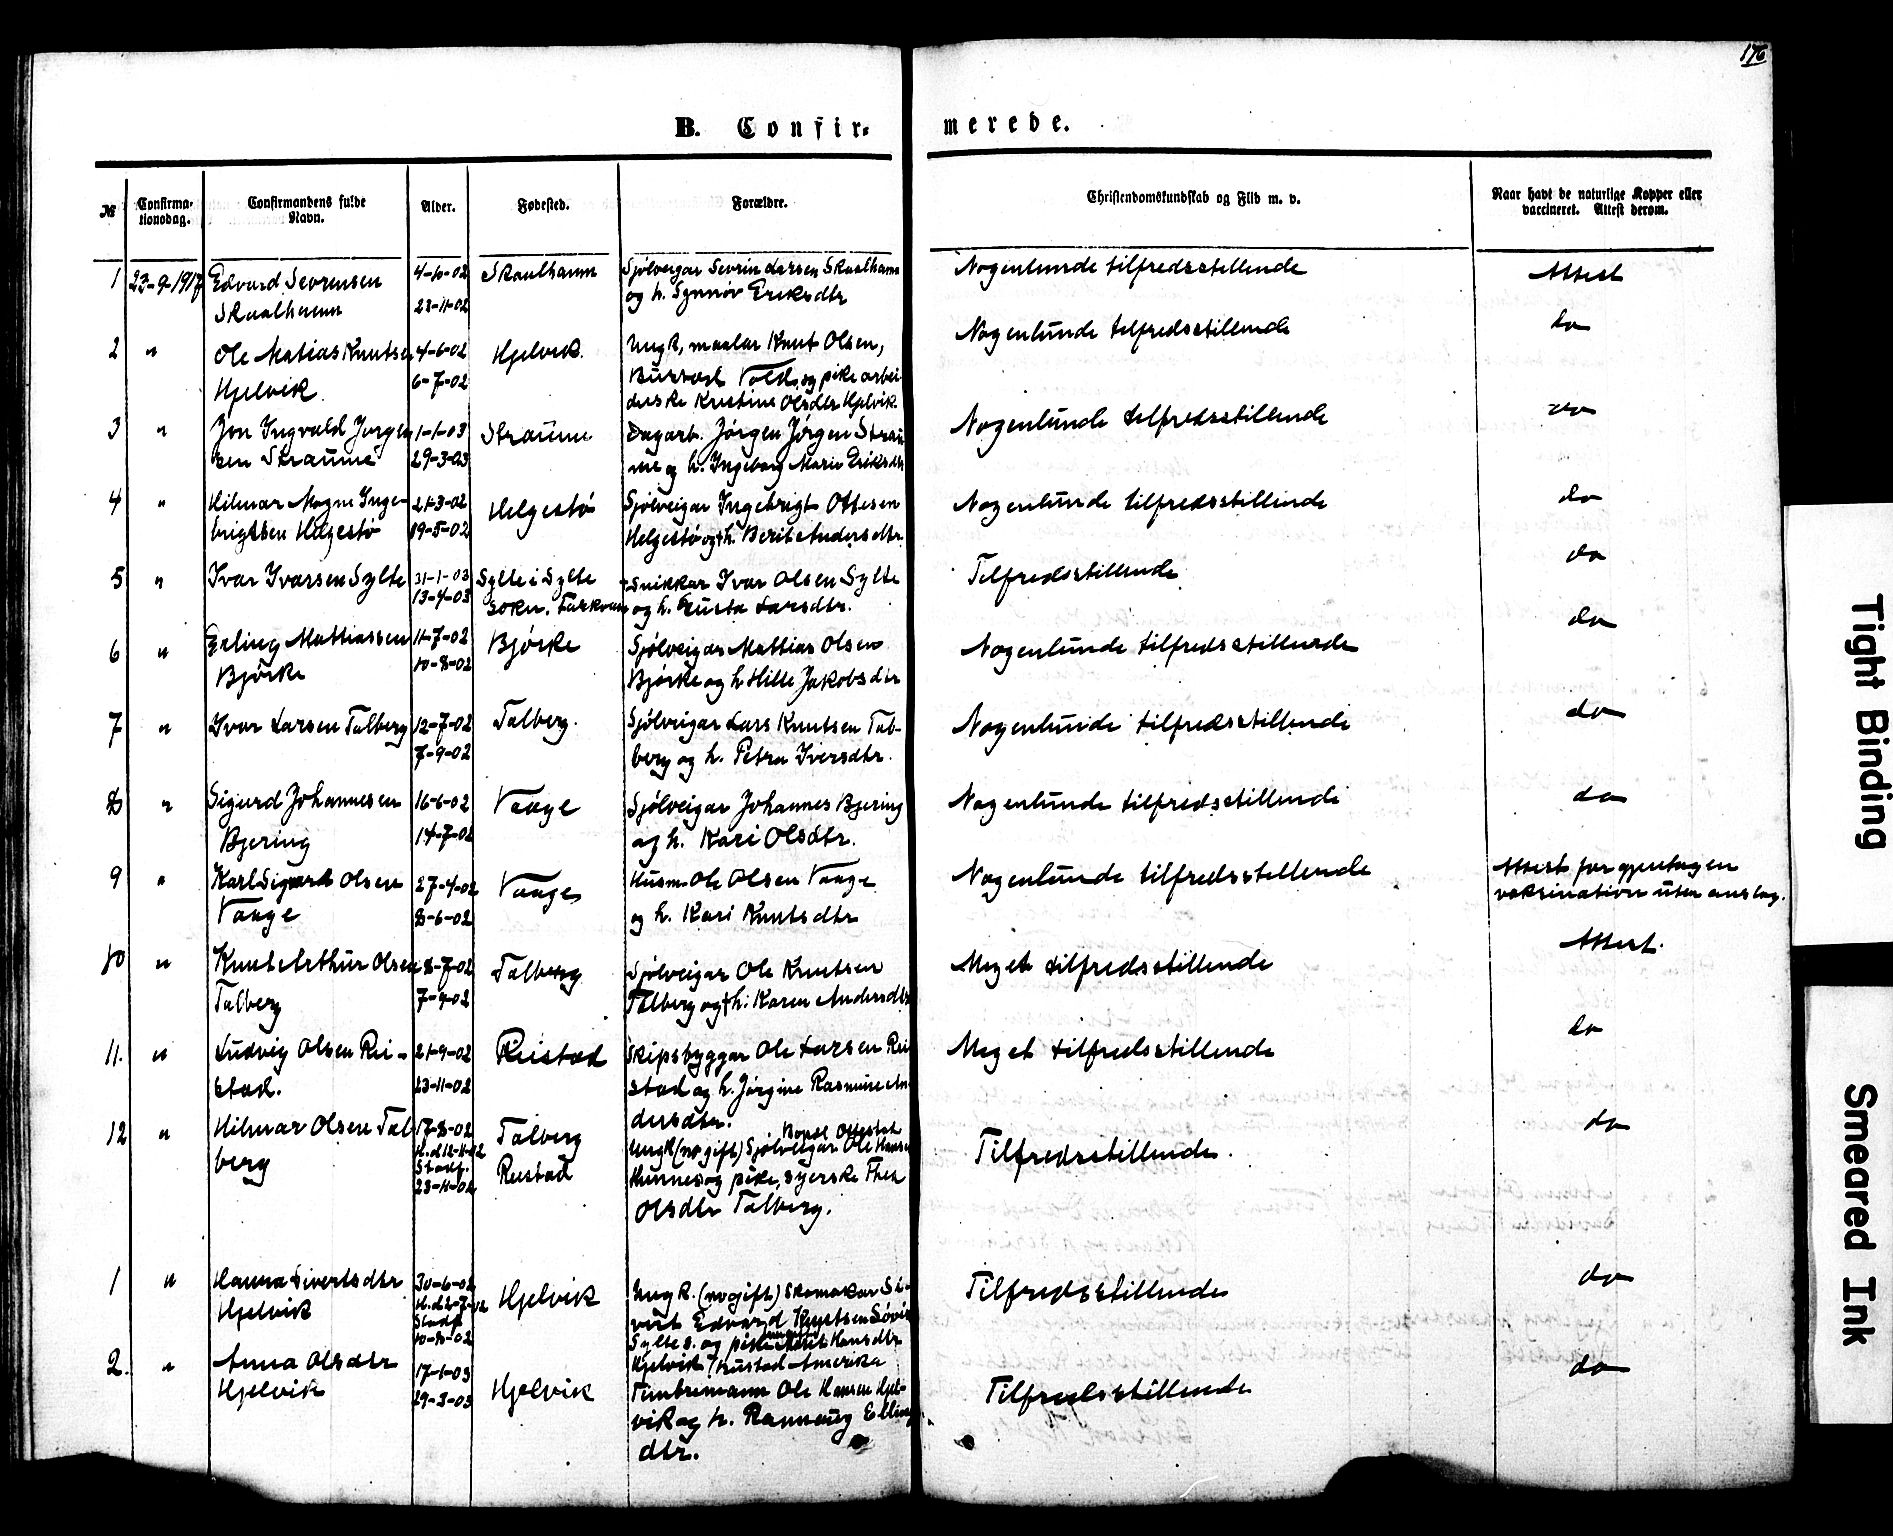 176
B. Confir-
merede.
№
Confirma-
tionsdag.
Confirmandens fulde
Navn.
Alder.
Fødested.
Forældre.
Christendomskundskab og Flid m. v.
Naar havt de naturlige Kopper eller
vaccineret. Attest derom.
1 23-9-1917 Edvard Sevrensen 4-10-02 Skaalhamn Sjølveigar Sevrin Larsen Skaalhamn Nogenlunde tilfredsstillende Attest
Skaalhamn 23-11-02 og h. Synnøv Eriksdtr
2 " Ole Matias Knutsen 4-6-02 Hjelvik Ungk, maalar Knut Olsen, Nogenlunde tilfredsstillende do
Hjelvik 6-7-02 Vold og pike arbei-
derske Kristine Olsdtr Hjelvik
3 " Jon Ingvald Jørgen 1-1-03 Straume Dagarb. Jørgen Jørgen Strau Nogenlunde tilfredsstillende do
sen Straume 29-3-03 me og h. Ingeborg Marie Eriksdtr
4 " Hilmar Mogne Inge- 21-3-02 Helgestø Sjølveigar Ingebrigt Ottesen Nogenlunde tilfredsstillende do
brigtsen Helgestø 19-5-02 Helgestø og †h. Berit Andersdtr
5 " Ivar Ivarsen Sylte 31-1-03 Sylte i Sylte Snikkar Ivar Olsen Sylte Tilfredsstillende do
13-4-03 sokn. og h. Gusta Larsdtr.
6 " Erling Mattiassen 11-7-02 Bjørke Sjølveigar Mattias Olsen Nogenlunde tilfredsstillende do
Bjørke 10-8-02 Bjørke og h Hille Jakobsdtr
7 " Ivar Larsen Talberg 12-7-02 Talberg. Sjølveigar Lars Knutsen Tal- Nogenlunde tilfredsstillende do
7-9-02 berg og h. Petra Iversdtr.
8 " Sigurd Johannesen 16-6-02 Vaage Sjølveigar Johannes Bjering Nogenlunde tilfredsstillende do
Bjering 14-7-02 og h. Kari Olsdtr.
9 " Karl Sigurd Olsen 27-4-02 Vaage Husm. Ole Olsen Vaage Nogenlunde tilfredsstillende Attest for gjentagen
Vaage 8-6-02 og h. Kari Knutsdtr vaksination uten anslag.
10 " Knut Arthur Olsen 8-7-02 Talberg Sjølveigar Ole Knutsen Meget tilfredsstillende Attest.
Talberg 7-9-02 Talberg og †h: Karen Andersdtr
11. " Ludvig Olsen Rei- 21-9-02 Reistad Skipsbyggar Ole Larsen Rei Meget tilfredsstillende do
stad. 23-11-02 stad og h. Jørgine Rasmine An
dersdtr.
12 " Hilmar Olsen Tal 17-8-02 Talberg Ungk (no gift) Sjølveigar Ole Hansen Tilfredsstillende. do
berg H.d 12-11-02 Reistad og pike, syerske Thea
Stadf. Olsdtr Talberg.
23-11-02
1 " Hanna Sivertsdtr 30-6-02 Hjelvik Ungk. (no gift) Skomakar Si- Tilfredsstillende do
Hjelvik H.d 2-7-02 vert Edvard Knutsen
Stadf. Sylte s. og pike Hansdtr
10-8-02 Hjelvik Amerika
2. " Anna Olsdtr 17-1-03 Hjelvik Timbremann Ole Hansen Hjel- Tilfredsstillende do
Hjelvik 29-3-03 vik og h. Rannaug Elling
dtr.
Tight Binding
Smeared Ink